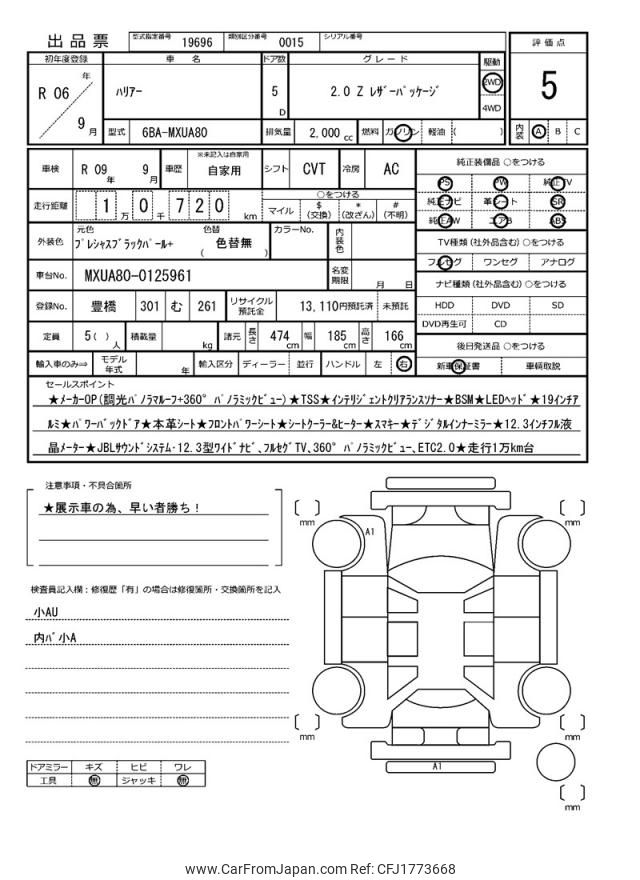 出品票 型式指定番号 19696 類別区分番号 0015 シリアル番号
初年度登録 車名 ドア数 グレード 駆動 評価点
R 06 年 9 月 ﾊﾘｱｰ 5 D 2.0 Z ﾚｻﾞｰﾊﾟｯｹｰｼﾞ 2WD 4WD 5
型式 6BA-MXUA80 排気量 2,000 cc 燃料 ガソリン 軽油 ( ) 内装 A B C
車検 R 09 年 9 月 車歴 ※未記入は自家用 自家用 シフト CVT 冷房 AC
純正装備品 ○をつける
PS PW 純正TV
純正ナビ 革シート SR
純正AW エアB ABS
走行距離 1 0 万 千 7 2 0 km
○をつける
マイル $ (交換) * (改ざん) # (不明)
TV種類 (社外品含む) ○をつける
フルセグ ワンセグ アナログ
外装色 元色 ﾌﾟﾚｼｬｽﾌﾞﾗｯｸﾊﾟｰﾙ+ 色替 ( 色替無 ) カラーNo. 内装色
車台No. MXUA80-0125961 名変期限 月 日
ナビ種類 (社外品含む) ○をつける
HDD DVD SD
DVD再生可 CD
登録No. 豊橋 301 む 261 リサイクル預託金 13,110円預託済 未預託
定員 5( ) 人 積載量 kg 諸元 長さ 474 cm 幅 185 cm 高さ 166 cm
後日発送品 ○をつける
新車保証書 車輌取説
輸入車のみ⇒ モデル年式 年 輸入区分 ディーラー 並行 ハンドル 左 右
セールスポイント
★ﾒｰｶｰOP(調光ﾊﾟﾉﾗﾏﾙｰﾌ+360°ﾊﾟﾉﾗﾐｯｸﾋﾞｭｰ)★TSS★ｲﾝﾃﾘｼﾞｪﾝﾄｸﾘｱﾗﾝｽｿﾅｰ★BSM★LEDﾍｯﾄﾞ★19ｲﾝﾁｱ
ﾙﾐ★ﾊﾟﾜｰﾊﾞｯｸﾄﾞｱ★本革ｼｰﾄ★ﾌﾛﾝﾄﾊﾟﾜｰｼｰﾄ★ｼｰﾄｸｰﾗｰ&ﾋｰﾀｰ★ｽﾏｷｰ★ﾃﾞｼﾞﾀﾙｲﾝﾅｰﾐﾗｰ★12.3ｲﾝﾁﾌﾙ液
晶ﾒｰﾀｰ★JBLｻｳﾝﾄﾞｼｽﾃﾑ･12.3型ﾜｲﾄﾞﾅﾋﾞ､ﾌﾙｾｸﾞTV､360°ﾊﾟﾉﾗﾐｯｸﾋﾞｭｰ､ETC2.0★走行1万km台
注意事項・不具合箇所
★展示車の為、早い者勝ち！
検査員記入欄：修復歴「有」の場合は修復箇所・交換箇所を記入
小AU
内ﾊﾞ小A
ドアミラー キズ ヒビ ワレ
工具 無 ジャッキ 無
mm
mm
A1
mm
mm
A1
mm
www.CarFromJapan.com Ref: CFJ1773668